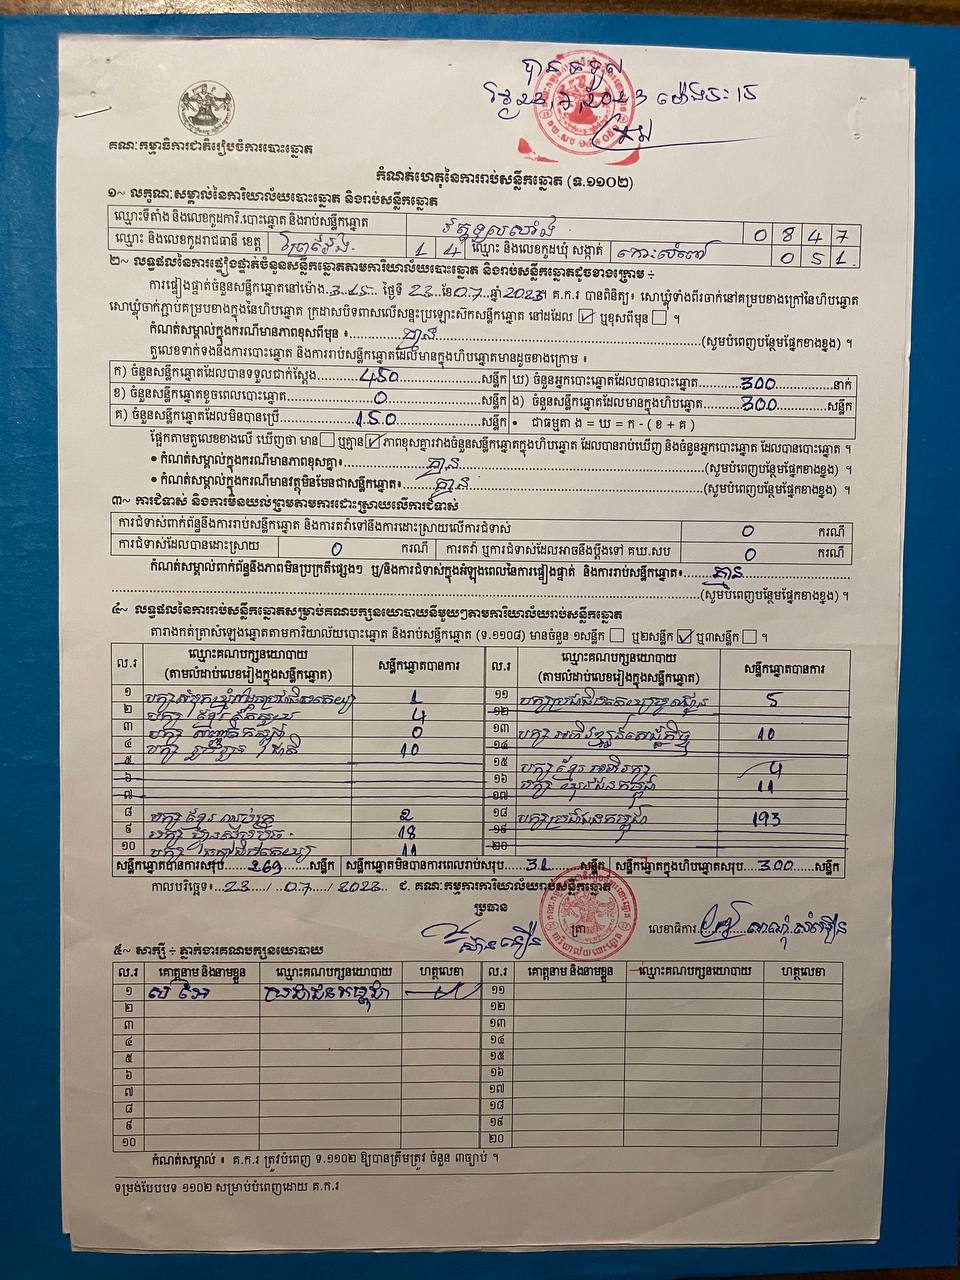 បានទទួល
គណៈកម្មាធិការជាតិរៀបចំការបោះឆ្នោត
កំណត់ហេតុនៃការរាប់សន្លឹកឆ្នោត (ទ.១១០២)
១~ លក្ខណៈសម្គាល់នៃការិយាល័យបោះឆ្នោត និងរាប់សន្លឹកឆ្នោត
ឈ្មោះទីតាំង និងលេខកូដការិ.បោះឆ្នោត និងរាប់សន្លឹកឆ្នោត 0 8 4 7
ឈ្មោះ និងលេខកូដរាជធានី ខេត្ត ព្រៃវែង 1 4 ឈ្មោះ និងលេខកូដឃុំ សង្កាត់ កោះសំពៅ 0 5 1
២~ លទ្ធផលនៃការផ្ទៀងផ្ទាត់ចំនួនសន្លឹកឆ្នោតតាមការិយាល័យបោះឆ្នោត និងរាប់សន្លឹកឆ្នោតដូចខាងក្រោម ÷
ការផ្ទៀងផ្ទាត់ចំនួនសន្លឹកឆ្នោតនៅម៉ោង 3:15 ថ្ងៃទី 23 ខែ 07 ឆ្នាំ 2023 គ.ក.រ បានពិនិត្យ៖ សោឃ្លុំទាំងពីរចាក់នៅគម្របខាងក្រៅនៃហិបឆ្នោត
សោឃ្លុំចាក់ភ្ជាប់គម្របខាងក្នុងនៃហិបឆ្នោត ក្រដាសបិទពាសលើសន្ទះប្រឡោះសិកសន្លឹកឆ្នោត នៅដដែល ☑ ឬខុសពីមុន ☐ ។
កំណត់សម្គាល់ក្នុងករណីមានភាពខុសពីមុន ៖ គ្មាន (សូមបំពេញបន្ថែមផ្នែកខាងខ្នង) ។
តួលេខទាក់ទងនឹងការបោះឆ្នោត និងការរាប់សន្លឹកឆ្នោតដែលមានក្នុងហិបឆ្នោតមានដូចខាងក្រោម ៖
ក) ចំនួនសន្លឹកឆ្នោតដែលបានទទួលជាក់ស្តែង 450 សន្លឹក ឃ) ចំនួនអ្នកបោះឆ្នោតដែលបានបោះឆ្នោត 300 នាក់
ខ) ចំនួនសន្លឹកឆ្នោតខូចពេលបោះឆ្នោត 0 សន្លឹក ង) ចំនួនសន្លឹកឆ្នោតដែលមានក្នុងហិបឆ្នោត 300 សន្លឹក
គ) ចំនួនសន្លឹកឆ្នោតដែលមិនបានប្រើ 150 សន្លឹក • ជាធម្មតា ង = ឃ = ក - ( ខ + គ )
ផ្អែកតាមតួលេខខាងលើ ឃើញថា មាន ☐ ឬគ្មាន ☑ ភាពខុសគ្នារវាងចំនួនសន្លឹកឆ្នោតក្នុងហិបឆ្នោត ដែលបានរាប់ឃើញ និងចំនួនអ្នកបោះឆ្នោត ដែលបានបោះឆ្នោត ។
• កំណត់សម្គាល់ក្នុងករណីមានភាពខុសគ្នា៖ គ្មាន (សូមបំពេញបន្ថែមផ្នែកខាងខ្នង) ។
• កំណត់សម្គាល់ក្នុងករណីមានវត្ថុមិនមែនជាសន្លឹកឆ្នោត៖ គ្មាន (សូមបំពេញបន្ថែមផ្នែកខាងខ្នង) ។
៣~ ការជំទាស់ និងការមិនយល់ព្រមតាមការដោះស្រាយលើការជំទាស់
ការជំទាស់ពាក់ព័ន្ធនឹងការរាប់សន្លឹកឆ្នោត និងការតវ៉ាទៅនឹងការដោះស្រាយលើការជំទាស់ 0 ករណី
ការជំទាស់ដែលបានដោះស្រាយ 0 ករណី ការតវ៉ា ឬការជំទាស់ដែលអាចនឹងប្តឹងទៅ គឃ.សប 0 ករណី
កំណត់សម្គាល់ពាក់ព័ន្ធនឹងភាពមិនប្រក្រតីផ្សេងៗ ឬ/និងការជំទាស់ក្នុងអំឡុងពេលនៃការផ្ទៀងផ្ទាត់ និងការរាប់សន្លឹកឆ្នោត៖ គ្មាន
(សូមបំពេញបន្ថែមផ្នែកខាងខ្នង) ។
៤~ លទ្ធផលនៃការរាប់សន្លឹកឆ្នោតសម្រាប់គណបក្សនយោបាយនីមួយៗតាមការិយាល័យរាប់សន្លឹកឆ្នោត
តារាងកត់ត្រាសំឡេងឆ្នោតតាមការិយាល័យបោះឆ្នោត និងរាប់សន្លឹកឆ្នោត (ទ.១១០៨) មានចំនួន ១សន្លឹក ☐ ឬ២សន្លឹក ☑ ឬ៣សន្លឹក ☐ ។
ល.រ ឈ្មោះគណបក្សនយោបាយ (តាមលំដាប់លេខរៀងក្នុងសន្លឹកឆ្នោត) សន្លឹកឆ្នោតបានការ ល.រ ឈ្មោះគណបក្សនយោបាយ (តាមលំដាប់លេខរៀងក្នុងសន្លឹកឆ្នោត) សន្លឹកឆ្នោតបានការ
១ 1 ១១ 5
២ 4 ១២
៣ 0 ១៣ 10
៤ 10 ១៤
៥ ១៥ បក្ស ខ្មែរ អភិរក្ស 4
៦ ១៦ 11
៧ ១៧
៨ 2 ១៨ បក្សប្រជាជនកម្ពុជា 193
៩ 18 ១៩
១០ 11 ២០
សន្លឹកឆ្នោតបានការសរុប 269 សន្លឹក សន្លឹកឆ្នោតមិនបានការពេលរាប់សរុប 31 សន្លឹក សន្លឹកឆ្នោតក្នុងហិបឆ្នោតសរុប 300 សន្លឹក
កាលបរិច្ឆេទ៖ 23 / 07 / 2023 ជ. គណៈកម្មការការិយាល័យរាប់សន្លឹកឆ្នោត
ប្រធាន
ត្រា លេខាធិការ
៥~ សាក្សី ÷ ភ្នាក់ងារគណបក្សនយោបាយ
ល.រ គោត្តនាម និងនាមខ្លួន ឈ្មោះគណបក្សនយោបាយ ហត្ថលេខា ល.រ គោត្តនាម និងនាមខ្លួន ឈ្មោះគណបក្សនយោបាយ ហត្ថលេខា
១ ប្រជាជនកម្ពុជា ១១
២ ១២
៣ ១៣
៤ ១៤
៥ ១៥
៦ ១៦
៧ ១៧
៨ ១៨
៩ ១៩
១០ ២០
កំណត់សម្គាល់ ៖ គ.ក.រ ត្រូវបំពេញ ទ.១១០២ ឱ្យបានត្រឹមត្រូវ ចំនួន ៣ច្បាប់ ។
ទម្រង់បែបបទ ១១០២ សម្រាប់បំពេញដោយ គ.ក.រ